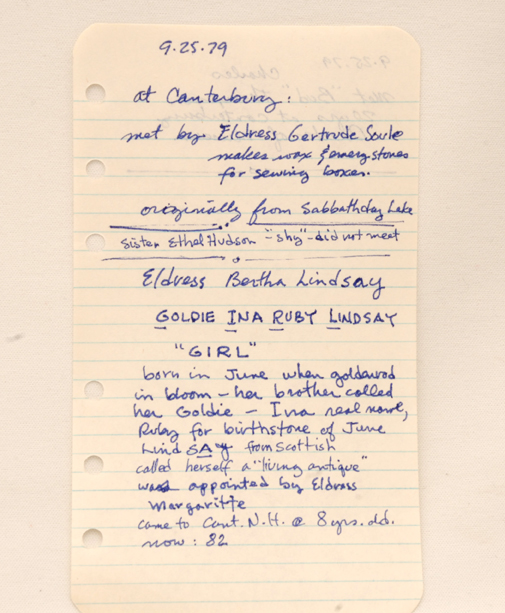 9.25.79
at Canterbury:
met by. Eldress Gertrude Soule
makes wax & emery stones
for sewing boxes.
originally from Sabbathday Lake
Sister Ethel Hudson - "shy" - did not meet
Eldress Bertha Lindsay
GOLDIE INA RUBY LINDSAY
"GIRL"
born in June when goldenrod
in bloom - her brother called
her Goldie - Ina real name,
Ruby for birthstone of June
LindSAY from Scottish
called herself a "living antique"
was appointed by Eldress
Margaritte
came to Cant. N.H. @ 8 yrs. old.
now: 82